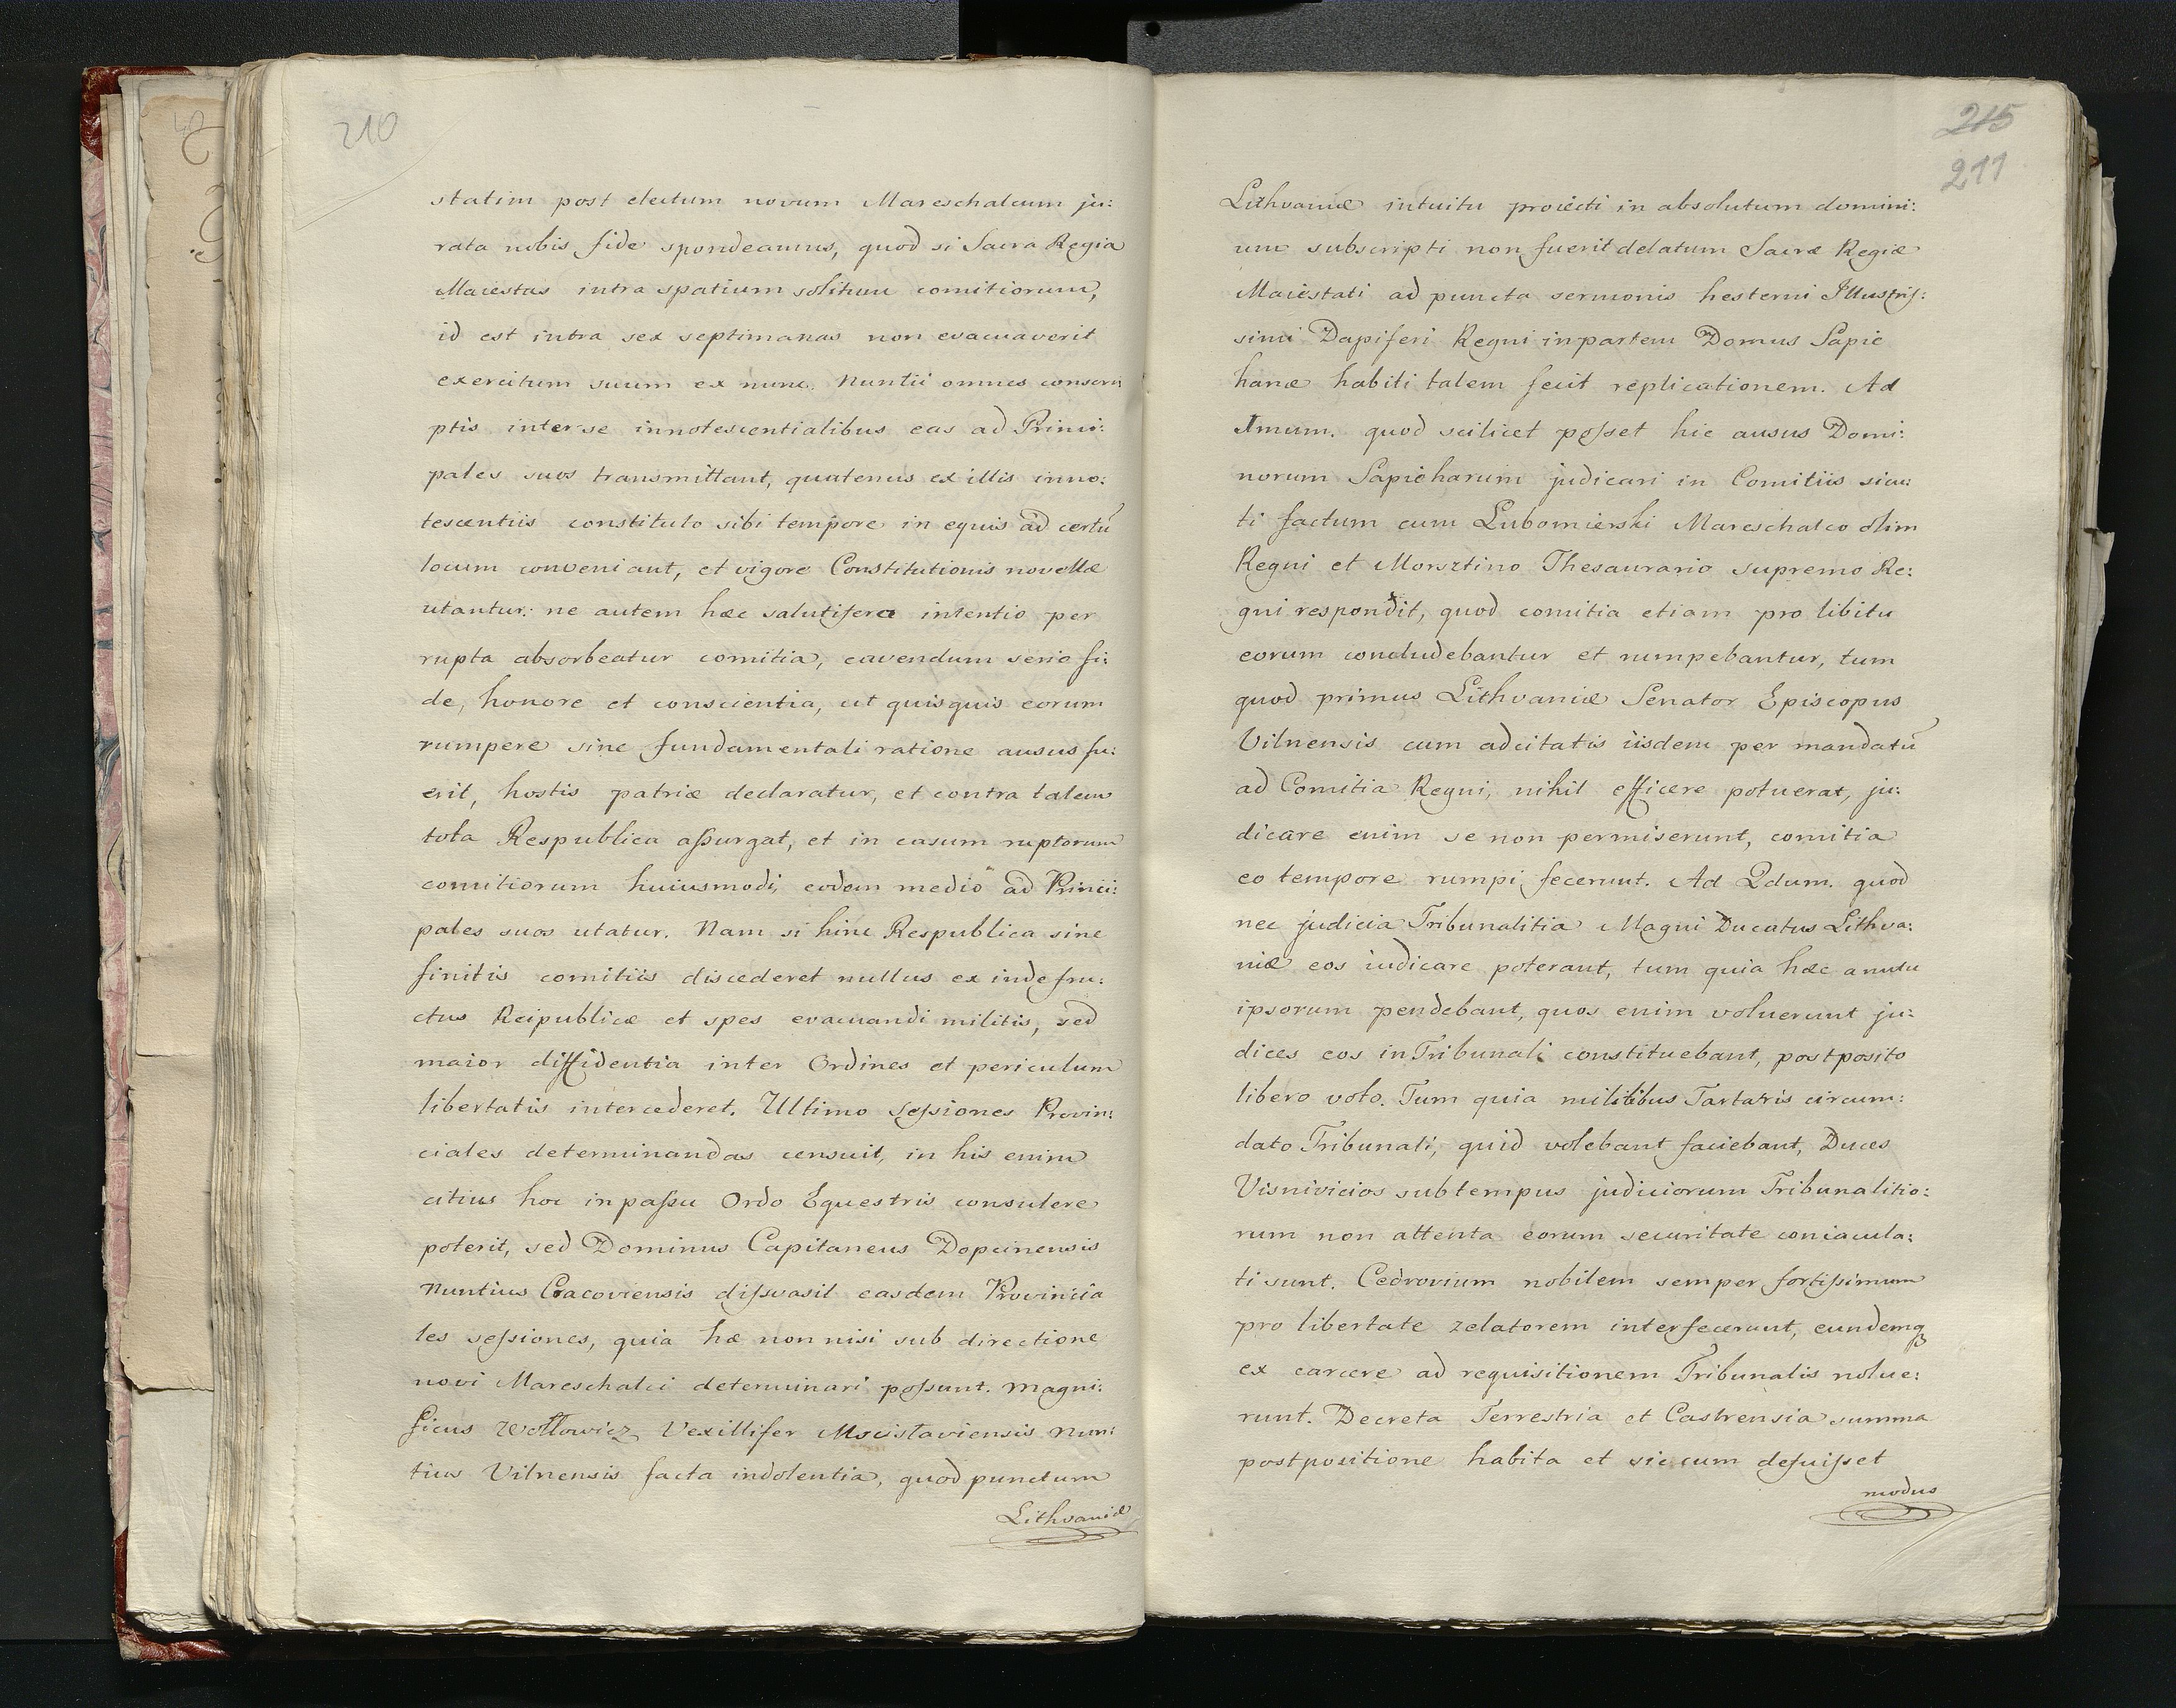 210
statim post electum novum Mareschalcum ju:
rata nobis fide spondeamus, quod si Sacra Regia
Maiestas intra spatium solitum comitiorum,
id est intra sex septimanas non evacuaverit
exercitum suum ex nunc. Nuntii omnes conscri
ptis inter se innotescentialibus eas ad Princi:
pales suos transmittant, quatenus ex illis inno:
tescentiis constituto sibi tempore in equis ad certũ
locum conveniant, et vigore Constitutionis novellæ
utantur: ne autem hæc salutifera intentio per
rupta absorbeatur comitia, cavendum serio fi:
de, honore et conscientia, ut quisquis eorum
rumpere sine fundamentali ratione ausus fu:
erit, hostis patriæ declaratur, et contra talem
tota Respublica aſsurgat, et in casum ruptorum
comitiorum huiusmodi, eodem medio ad Princi:
pales suos utatur. Nam si hinc Respublica sine
finitis comitiis discederet nullus ex inde fru:
ctus Reipublicæ et spes evacuandi militis, sed
maior diffidentia inter Ordines et periculum
libertatis intercederet. Ultimo seſsiones Provin:
ciales determinandas censuit, in his enim
citius hoc in paſsu Ordo Equestris consulere
poterit, sed Dominus Capitaneus Dopcinensis
Nuntius Cracoviensis diſsvasit easdem Provincia
les seſsiones, quia hæ non nisi sub directione
novi Mareschalci determinari poſsunt. Magni:
ficus Wołłowicz Vexillifer Mscistaviensis Nun:
tius Vilnensis facta indolentia, quod punctum
Lithvaniæ
215
211
Lithvaniæ intuitu proiecti in absolutum domini:
um subscripti non fuerit delatum Sacræ Regiæ
Maiestati ad puncta sermonis hesterni Illustriſ:
simi Dapiferi Regni in partem Domus Sapie
hanæ habiti talem fecit replicationem. Ad
Imum. quod scilicet poſset hic ausus Domi:
norum Sapieharum judicari in Comitiis sicu:
ti factum cum Lubomierski Mareschalco olim
Regni et Morsztino Thesaurario supremo Re:
gni respondit, quod comitia etiam pro libitu
eorum concludebantur et rumpebantur, tum
quod primus Lithvaniæ Senator Episcopus
Vilnensis cum adcitatis iisdem per mandatũ
ad Comitia Regni, nihil efficere potuerat, ju:
dicare enim se non permiserunt, comitia
eo tempore rumpi fecerunt. Ad 2dum. quod
nec judicia Tribunalitia Magni Ducatus Lithva:
niæ eos iudicare poterant, tum quia hæc a nutu
ipsorum pendebant, quos enim voluerunt ju:
dices eos in Tribunali constituebant, postposito
libero voto. Tum quia militibus Tartaris circum:
dato Tribunali, quid volebant faciebant, Duces
Visnivicios sub tempus judiciorum Tribunalitio:
rum non attenta eorum securitate coniacula:
ti sunt. Cedrovium nobilem semper fortiſsimum
pro libertate zelatorem interfecerunt, eundemqꝫ
ex carcere ad requisitionem Tribunalis nolue:
runt. Decreta Terrestria et Castrensia summa
postpositione habita et sic cum defuiſset
modus